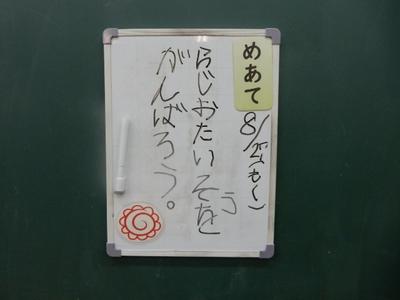 めあて
らじおたいそうを
がんばろう。